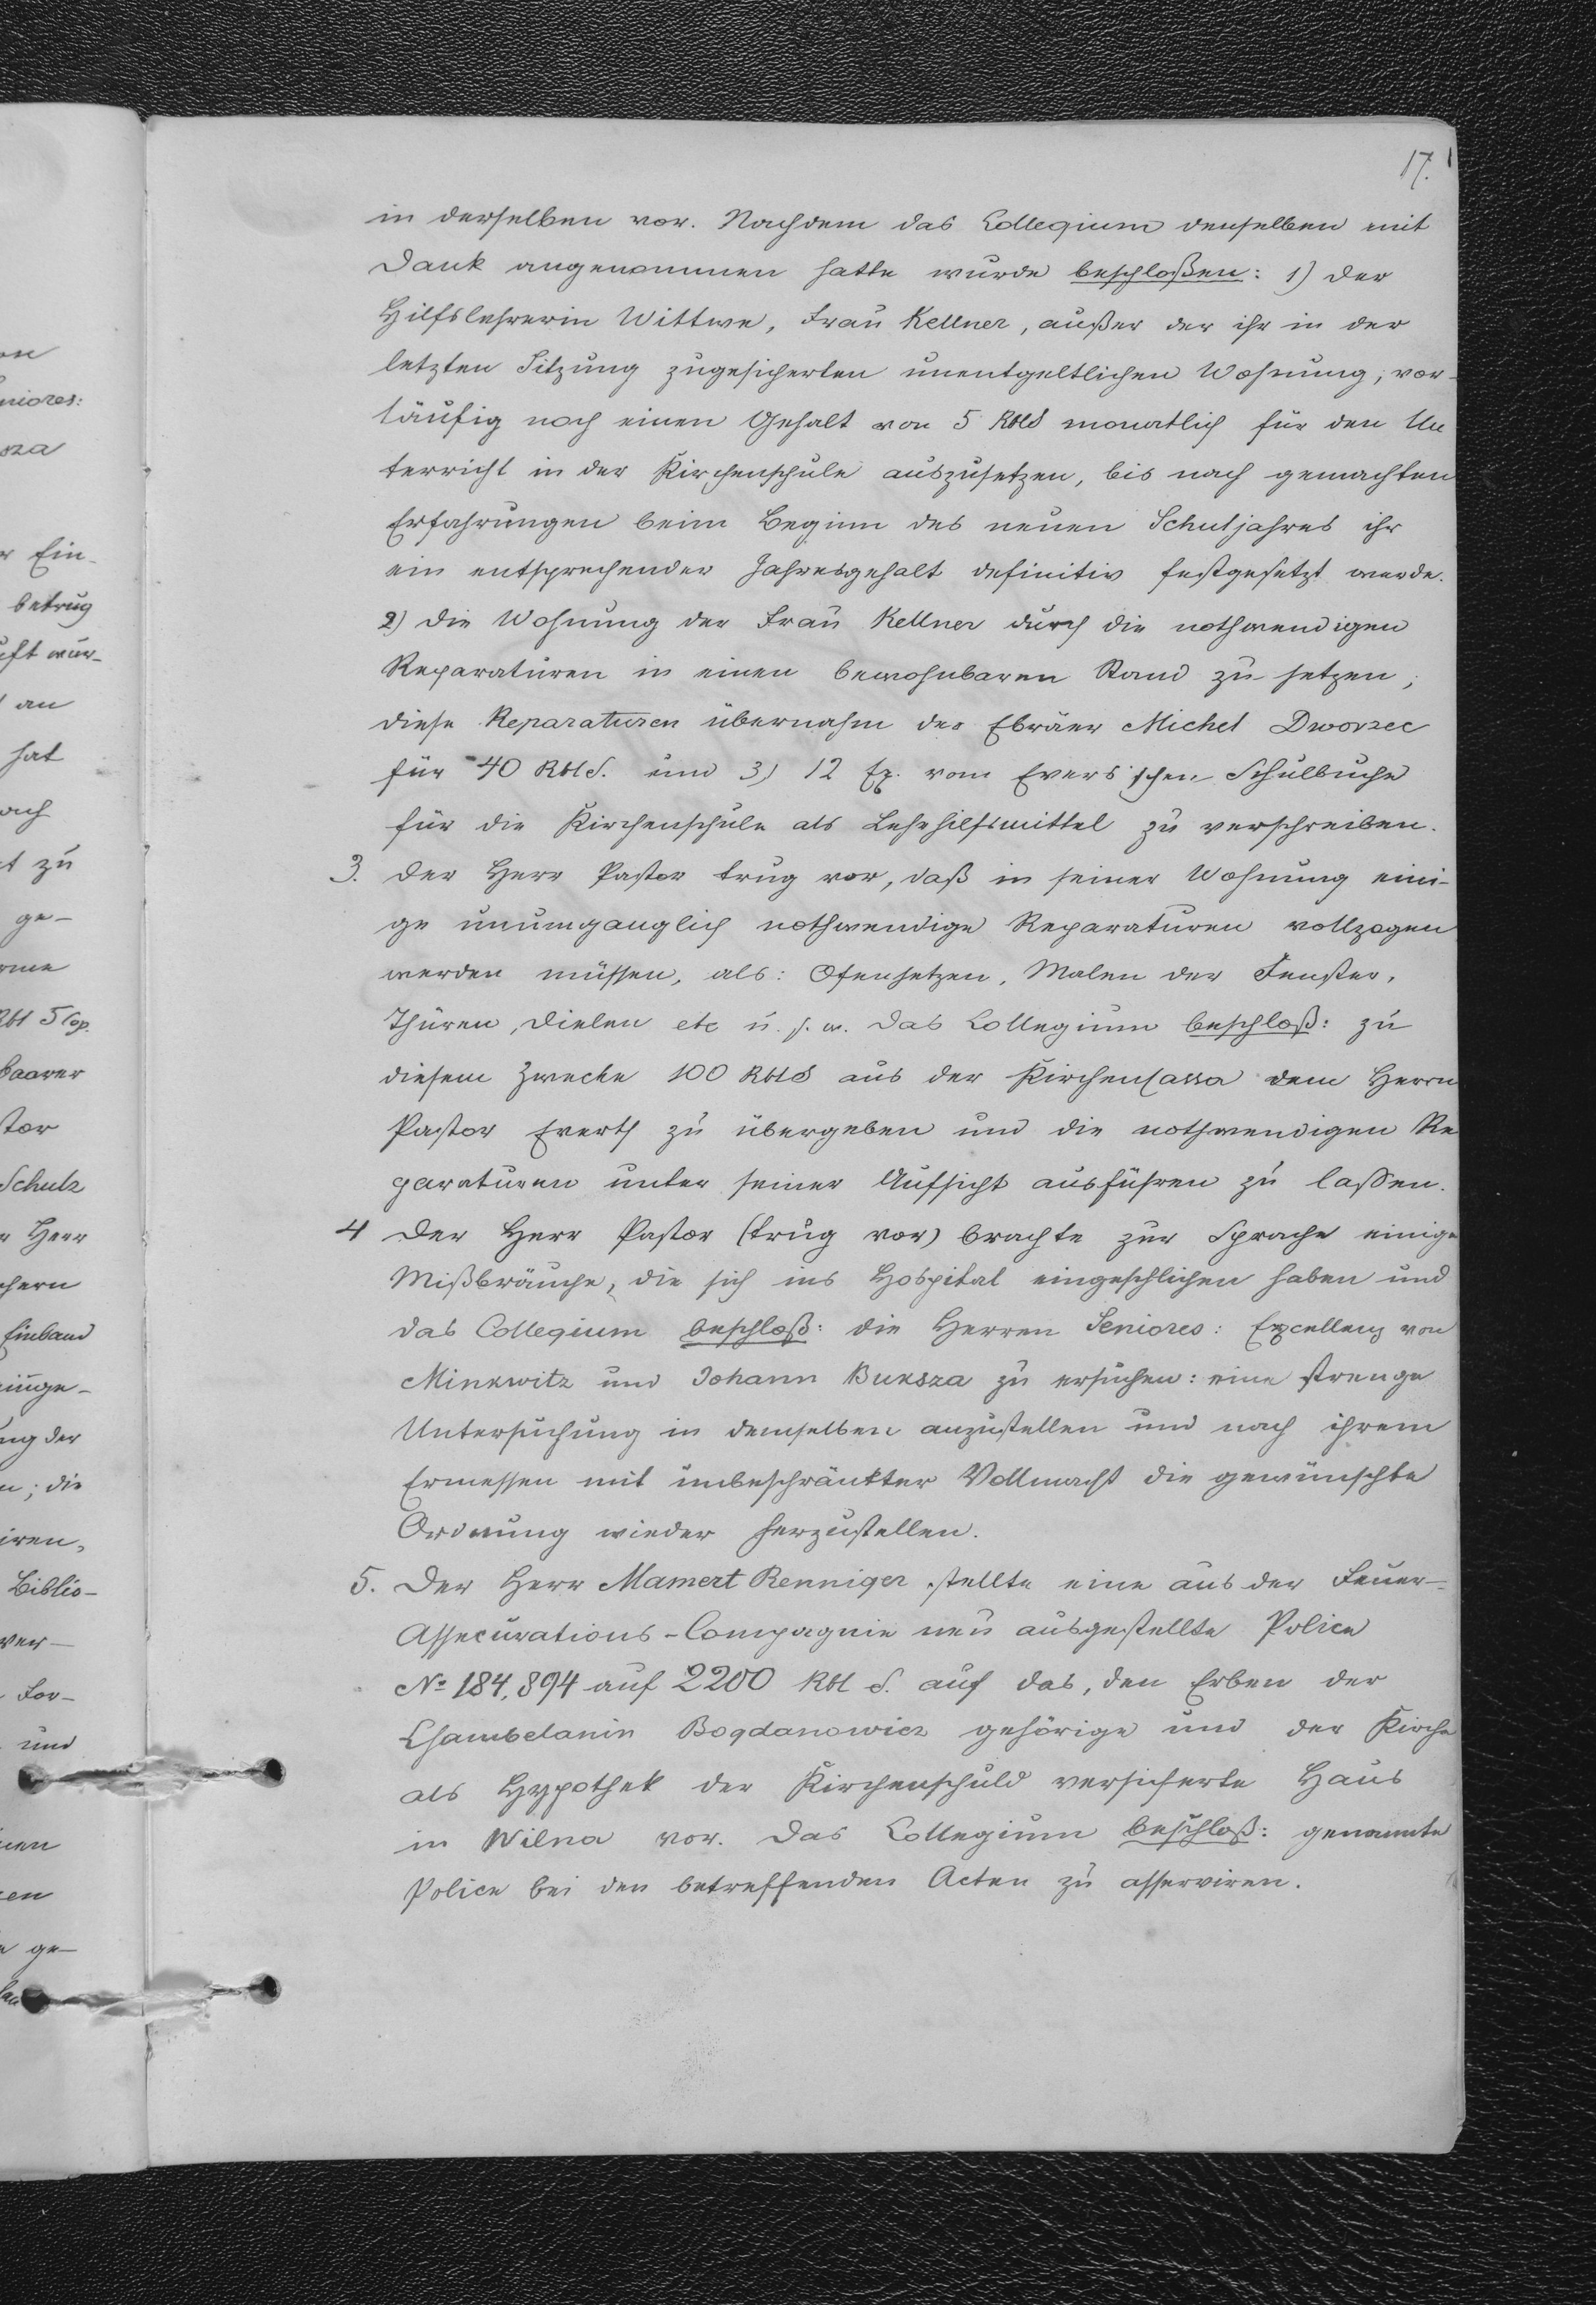 17.
in derselben vor. Nachdem das Collegium denselben mit
Dank angenommen hatte wurde beschloßen: 1) der
Hilfslehrerin Wittwe, Frau Kellner, außer der ihr in der
letzten Sitzung zugesicherten unentgeltlichen Wohnung, vor-
läufig noch einen Gehalt von 5 RblS monatlich für den Un
terricht in der Kirchenschule auszusetzen, bis nach gemachten
Erfahrungen beim Beginn des neuen Schuljahres ihr
ein entsprechender Jahresgehalt definitiv festgesetzt werde.
2) die Wohnung der Frau Kellner durch die nothwendigen
Reparaturen in einen bewohnbaren Stand zu setzen;
diese Reparaturen übernahm der Ebräer Michel Dworzec
für 40 Rbl S. und 3) 12 Ex. vom Evers'schen Schulbuche
für die Kirchenschule als Lehrhilfsmittel zu verschreiben.
3. Der Herr Pastor trug vor, daß in seiner Wohnung eini-
ge unumganglich nothwendige Reparaturen vollzogen
werden müssen, als: Ofensetzen, Malen der Fenster,
Thüren, Dielen etc u. s. w. Das Collegium beschloß: zu
diesem Zwecke 100 RblS aus der Kirchencassa dem Herrn
Pastor Everth zu übergeben und die nothwendigen Re
paraturen unter seiner Aufsicht ausführen zu laßen.
4 Der Herr Pastor (trug vor) brachte zur Sprache einige
Mißbräuche, die sich ins Hospital eingeschlichen haben und
das Collegium beschloß: die Herren Seniores: Excellenz von
Minkwitz und Johann Buksza zu ersuchen: eine strenge
Untersuchung in demselben anzustellen und nach ihrem
Ermessen mit unbeschränkter Vollmacht die gewünschte
Ordnung wieder herzustellen.
5. Der Herr Mamert Renniger stellte eine aus der Feuer-
Assecurations-Compagnie neu ausgestellte Police
No 184,894 auf 2200 Rbl S. auf das, den Erben der
Chambelanin Bogdanowicz gehörige und der Kirche
als Hypothek der Kirchenschuld versicherte Haus
in Wilna vor. Das Collegium beschloß: genannte
Police bei den betreffenden Acten zu asserviren.